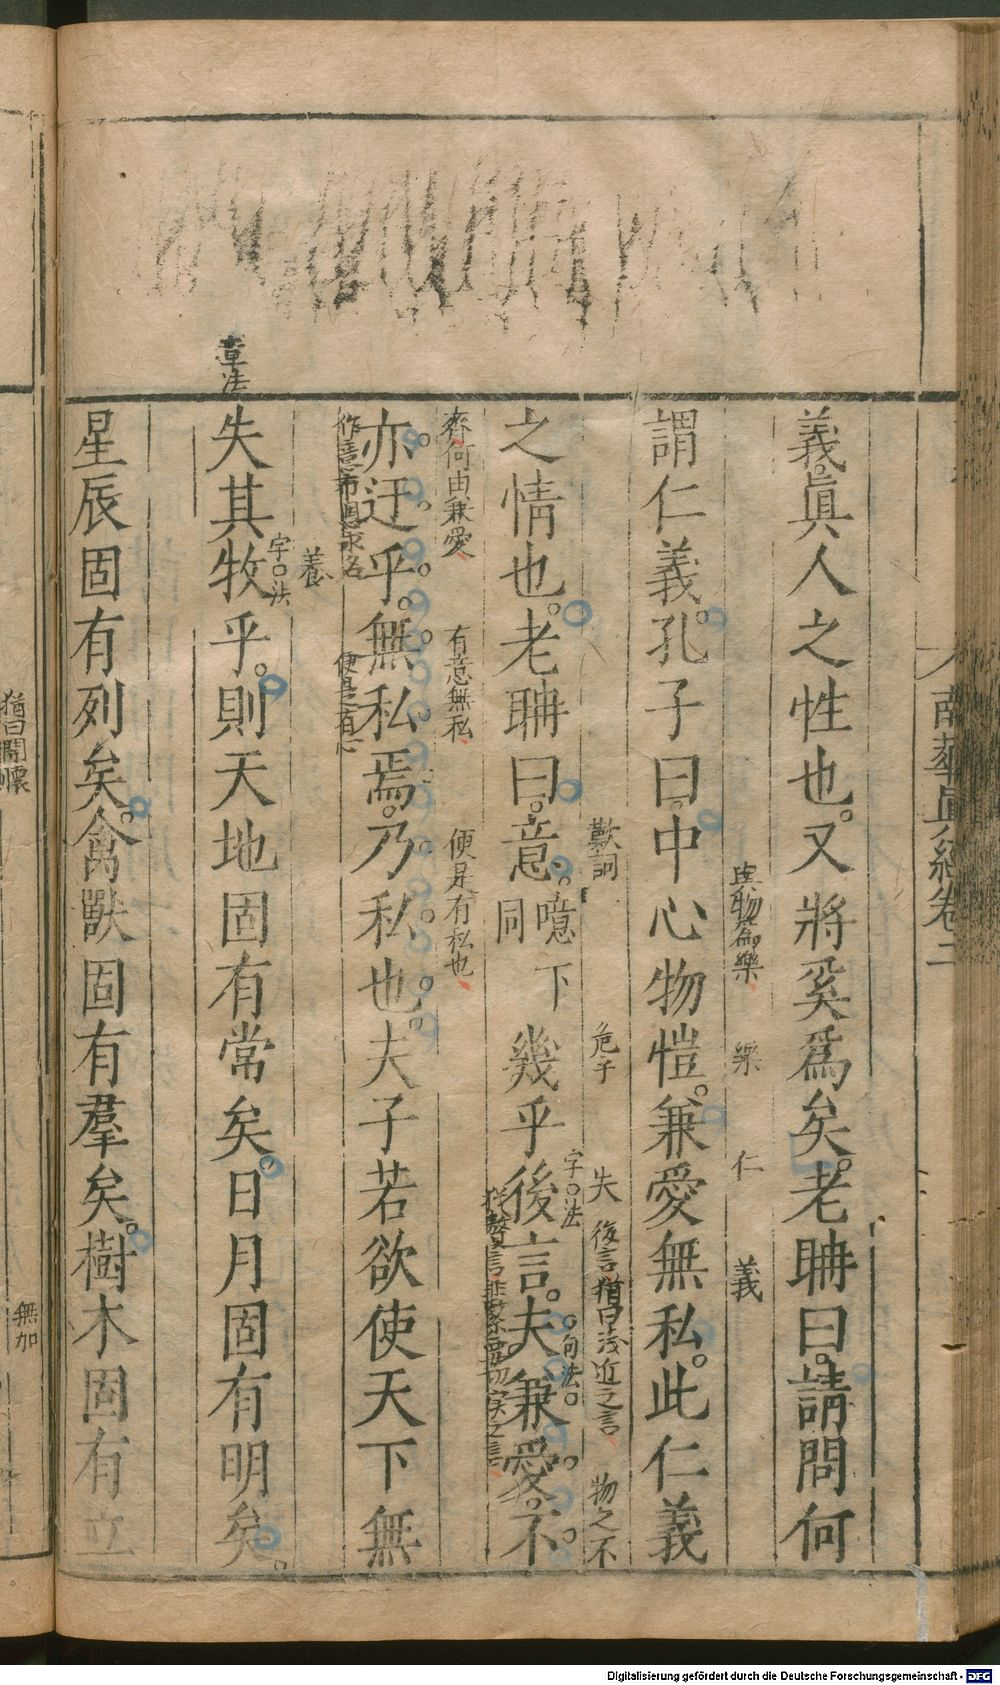 南華眞經卷二
義眞人之性也又將奚爲矣老聃曰請問何
與物為樂
樂
仁
義
謂仁義孔子曰中心物愷兼愛無私此仁義
歎詞
危子
失
後言猶曰淺近之言
物之不
之情也老聃曰意噫下同幾乎後言夫兼愛不
字法
句法
齊何由兼愛
有意無私
便是有私也
亦迂乎無私焉乃私也夫子若欲使天下無
便是有心
養
章法
失其牧乎則天地固有常矣日月固有明矣
字法
星辰固有列矣禽獸固有羣矣樹木固有立
無加
Digitalisierung gefördert durch die Deutsche Forschungsgemeinschaft - DFG